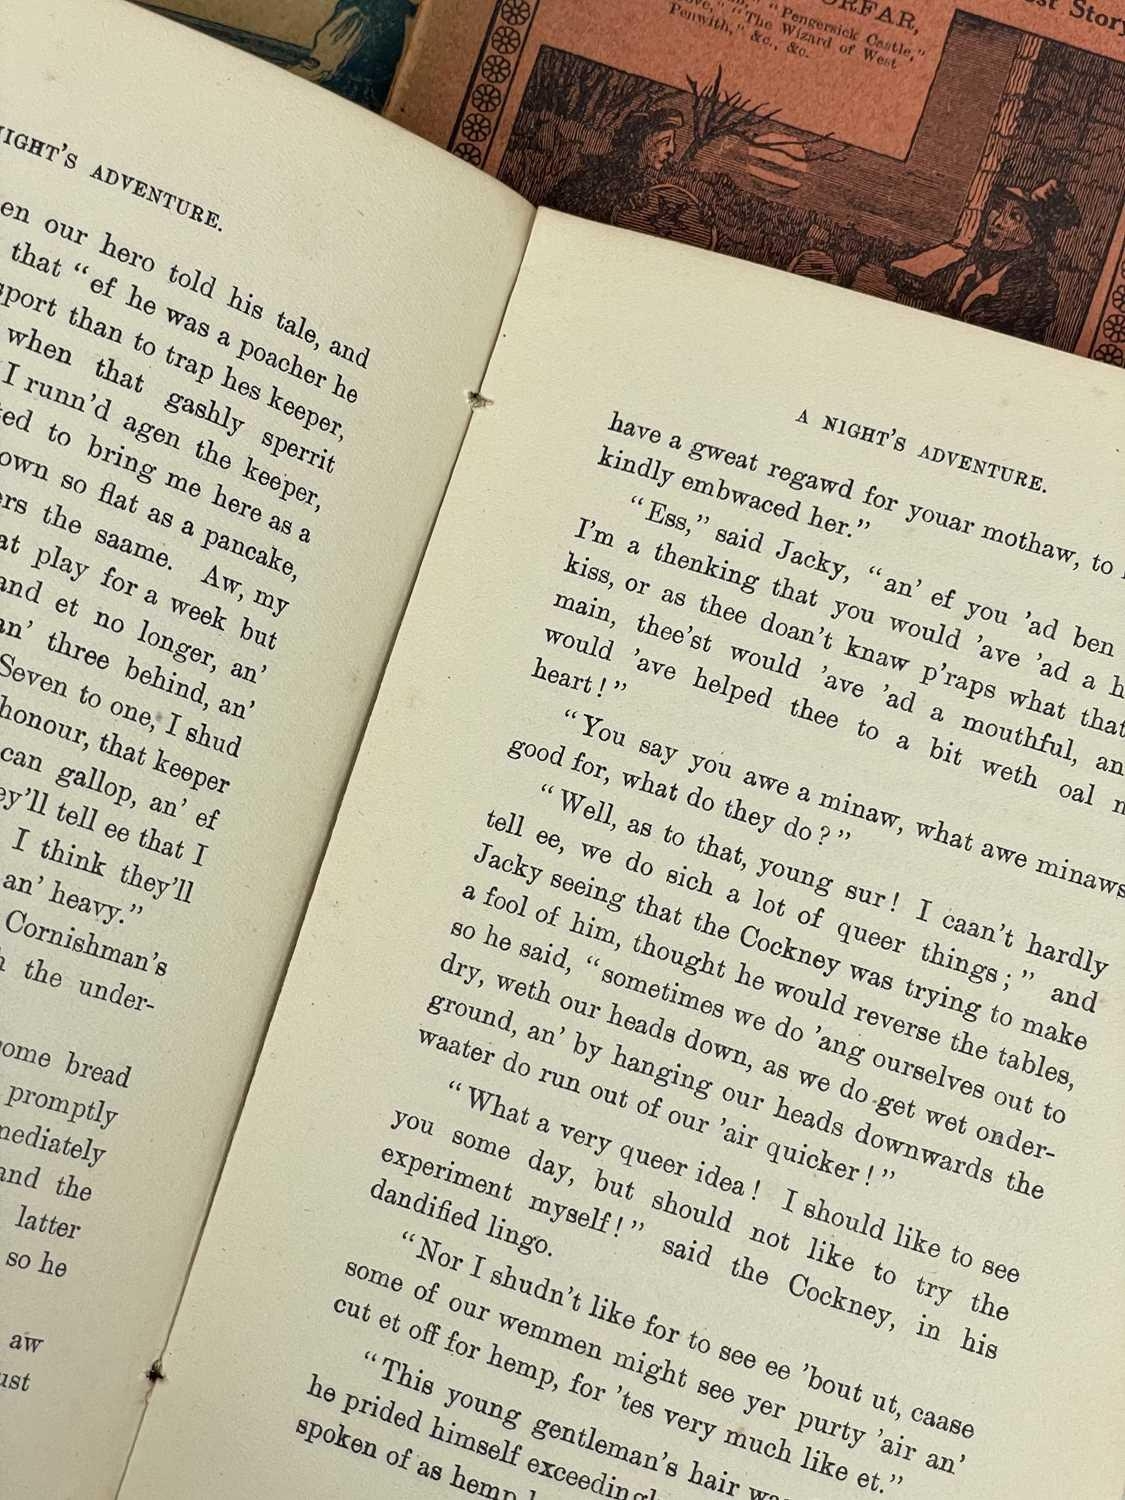 ORFAR,
"Pengersick Castle,"
ove," "The Wizard of West
Penwith," &c., &c.
est Story
NIGHT'S ADVENTURE.
en our hero told his tale, and
that "ef he was a poacher he
sport than to trap hes keeper,
when that gashly sperrit
I runn'd agen the keeper,
ted to bring me here as a
own so flat as a pancake,
ers the saame. Aw, my
at play for a week but
and et no longer, an'
an' three behind, an'
Seven to one, I shud
honour, that keeper
can gallop, an' ef
ey'll tell ee that I
I think they'll
an' heavy."
Cornishman's
h the under-
some bread
promptly
mediately
and the
latter
so he
aw
ust
A NIGHT'S ADVENTURE.
have a gweat regawd for youar mothaw, to
kindly embwaced her."
"Ess," said Jacky, "an' ef you 'ad ben
I'm a thenking that you would 'ave 'ad a h
kiss, or as thee doan't knaw p'raps what that
main, thee'st would 'ave 'ad a mouthful, an
would 'ave helped thee to a bit weth oal m
heart!"
"You say you awe a minaw, what awe minaws
good for, what do they do?"
"Well, as to that, young sur! I caan't hardly
tell ee, we do sich a lot of queer things;" and
Jacky seeing that the Cockney was trying to make
a fool of him, thought he would reverse the tables,
so he said, "sometimes we do 'ang ourselves out to
dry, weth our heads down, as we do get wet onder-
ground, an' by hanging our heads downwards the
waater do run out of our 'air quicker!"
"What a very queer idea! I should like to see
you some day, but should not like to try the
experiment myself!" said the Cockney, in his
dandified lingo.
"Nor I shudn't like for to see ee 'bout ut, caase
some of our wemmen might see yer purty 'air an'
cut et off for hemp, for 'tes very much like et."
"This young gentleman's hair was
he prided himself exceedingl
spoken of as hemp